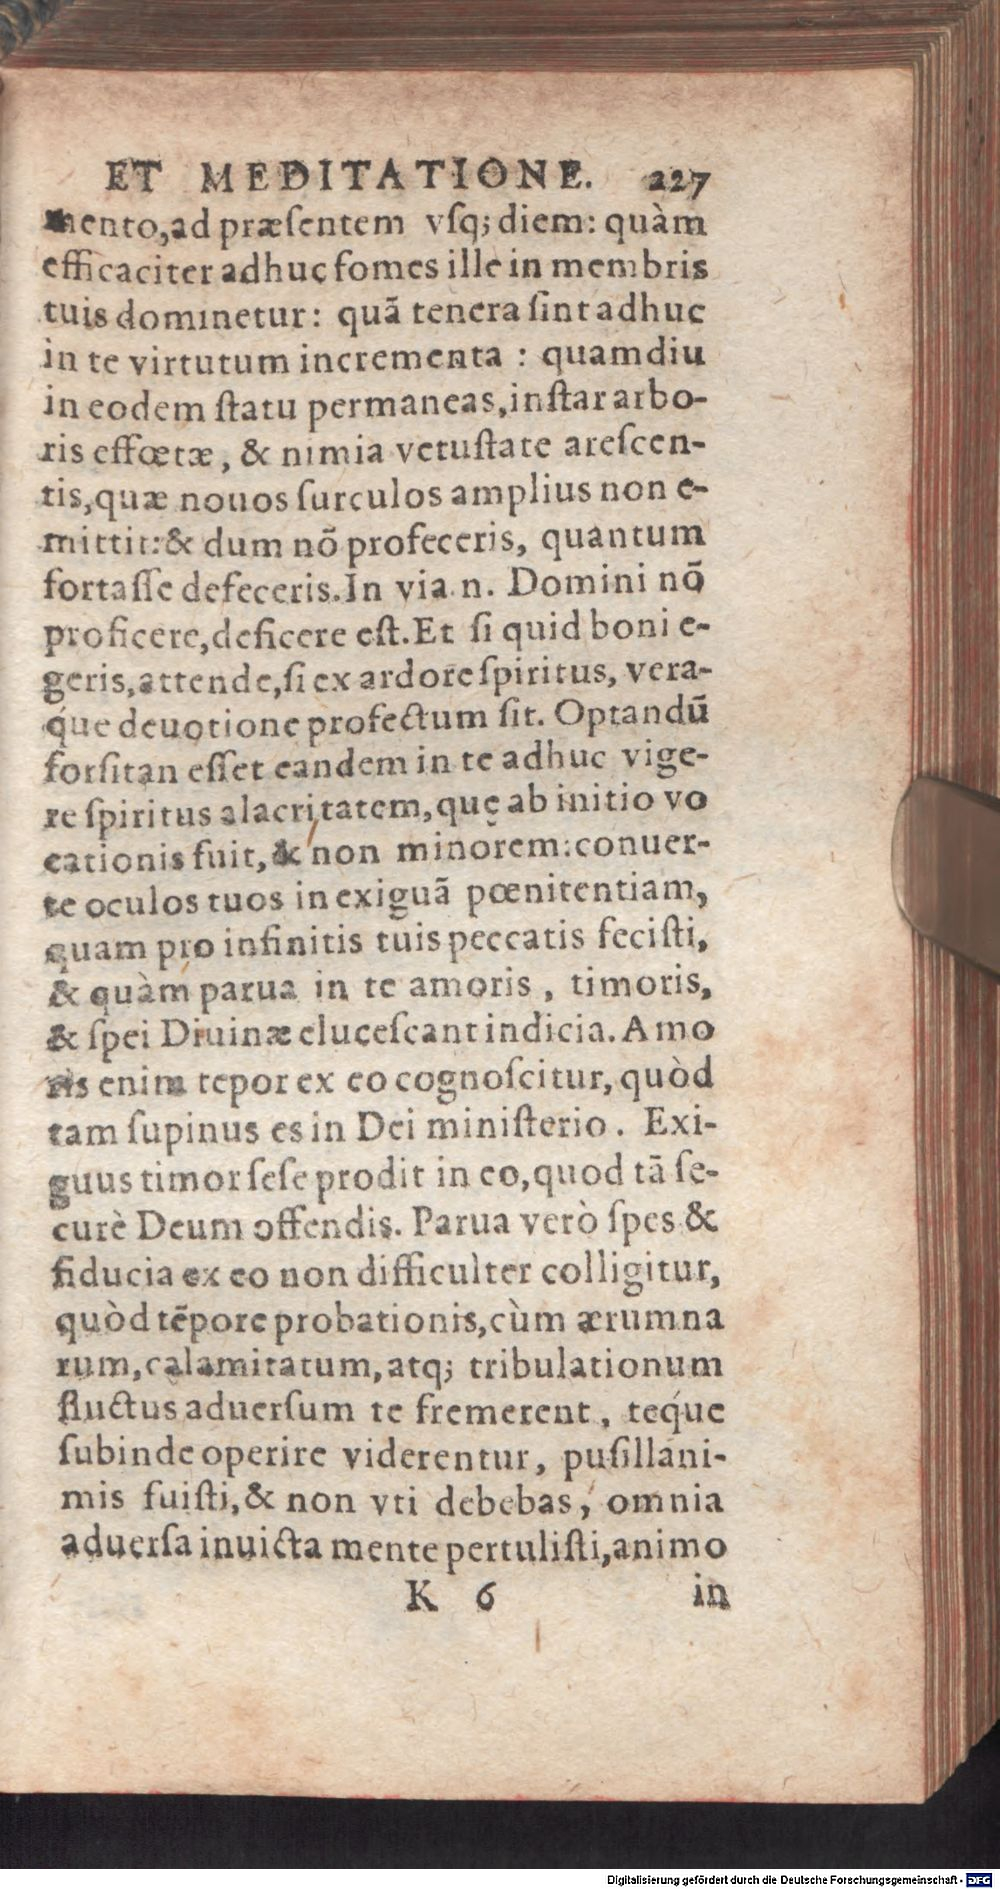 ET MEDITATIONE. 227
mento,ad præſentem vſq; diem: quàm
efficaciter adhuc fomes ille in membris
tuis dominetur: quã tenera ſint adhuc
in te virtutum incrementa : quamdiu
in eodem ſtatu permaneas,inſtar arbo-
ris effœtæ, & nimia vetuſtate areſcen-
tis,quæ nouos ſurculos amplius non e-
mittit:& dum nõ profeceris, quantum
fortaſſe defeceris.In via n. Domini nõ
proficere,deficere eſt.Et ſi quid boni e-
geris,attende,ſi ex ardore ſpiritus, vera-
q́ue deuotione profectum ſit. Optandũ
forſitan eſſet eandem in te adhuc vige-
re ſpiritus alacritatem,quę ab initio vo
cationis fuit,& non minorem:conuer-
te oculos tuos in exiguã pœnitentiam,
quam pro infinitis tuis peccatis feciſti,
& quàm parua in te amoris, timoris,
& ſpei Diuinæ eluceſcant indicia. Amo
ris enim tepor ex eo cognoſcitur, quòd
tam ſupinus es in Dei miniſterio. Exi-
guus timor ſeſe prodit in eo,quod tã ſe-
curè Deum offendis. Parua verò ſpes &
fiducia ex eo non difficulter colligitur,
quòd tẽpore probationis,cùm ærumna
rum,calamitatum,atq; tribulationum
fluctus aduerſum te fremerent, teq́ue
ſubinde operire viderentur, puſillani-
mis fuiſti,& non vti debebas, omnia
aduerſa inuicta mente pertuliſti,animo
K 6 in
Digitalisierung gefördert durch die Deutsche Forschungsgemeinschaft - DFG